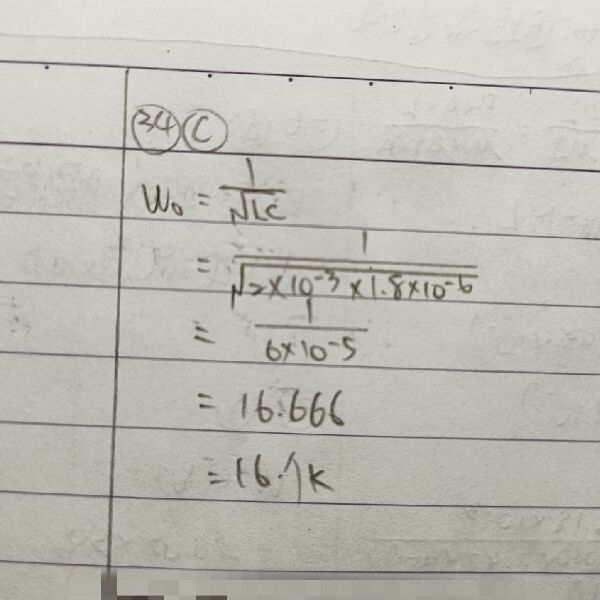 34 C
W₀ = 1/√LC
= 1/√2×10⁻³×1.8×10⁻⁶
= 1/6×10⁻⁵
= 16.666